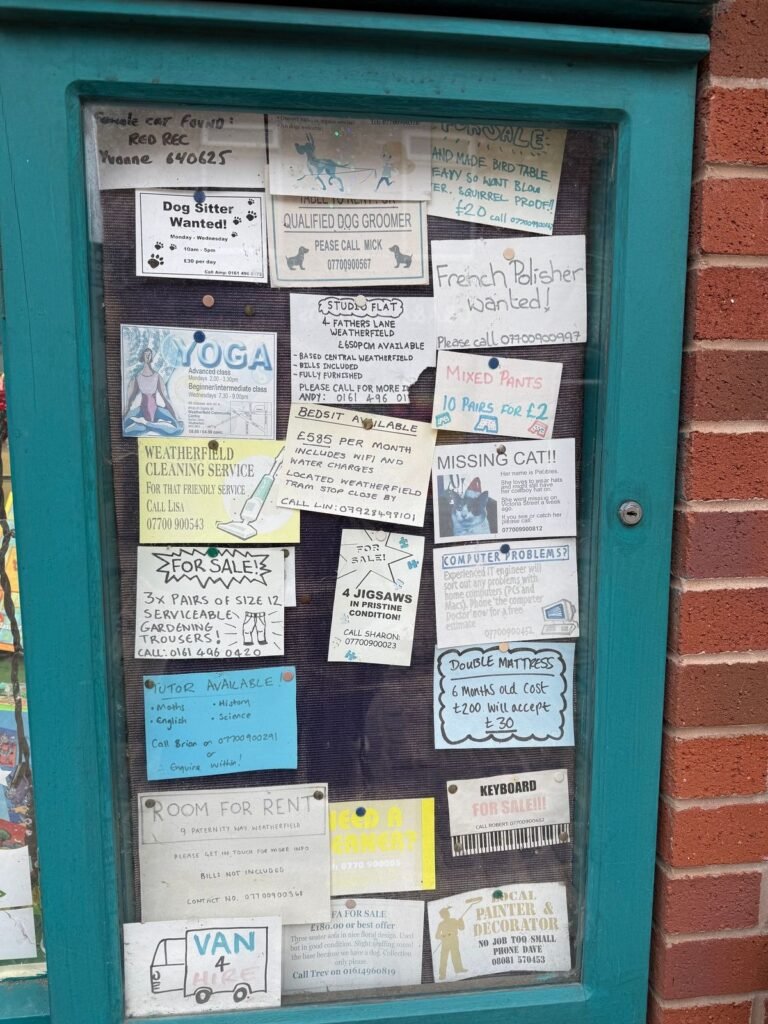 CAT FOUND:
RED REC
Yvonne 640625
FOR SALE
AND MADE BIRD TABLE
SO WONT BLOW
SQUIRREL PROOF!!
£20 call
Dog Sitter
Wanted!
Monday - Wednesday
10am - 5pm
£30 per day
Call Amy: 0161 496
QUALIFIED DOG GROOMER
PEASE CALL MICK
07700900567
French Polisher
wanted!
Please call 07700900997
STUDIO FLAT
4 FATHERS LANE
WEATHERFIELD
£650PCM AVAILABLE
- BASED CENTRAL WEATHERFIELD
- BILLS INCLUDED
- FULLY FURNISHED
PLEASE CALL FOR MORE
ANDY: 0161 496 01
YOGA
Advanced class
Mondays 2.00 - 3.30pm
Beginner/intermediate class
Wednesdays 7.30 - 9.00pm
MIXED PANTS
10 PAIRS FOR £2
BEDSIT AVAILABLE
£585 PER MONTH
INCLUDES WIFI AND
WATER CHARGES
LOCATED WEATHERFIELD
TRAM STOP CLOSE BY
CALL LIN: 07928498101
WEATHERFIELD
CLEANING SERVICE
FOR THAT FRIENDLY SERVICE
CALL LISA
07700 900543
MISSING CAT!!
Her name is Pickles.
She loves to wear hats
and might still have
her cowboy hat on.
She went missing on
Victoria Street a week
ago.
If you see or catch her
please call:
07700900812
FOR SALE!
3X PAIRS OF SIZE 12
SERVICEABLE
GARDENING
TROUSERS!
CALL: 0161 496 0420
FOR
SALE!
4 JIGSAWS
IN PRISTINE
CONDITION!
CALL SHARON:
07700900023
COMPUTER PROBLEMS?
Experienced IT engineer will
sort out any problems with
home computers (PCs and
Macs). Phone 'the computer
Doctor' now for a free
estimate
07700900452
TUTOR AVAILABLE!
• Maths • History
• English • Science
Call Brian on 07700900291
or
Enquire Within!
DOUBLE MATTRESS
6 Months old Cost
£200 Will accept
£30
ROOM FOR RENT
9 PATERNITY WAY, WEATHERFIELD
PLEASE GET IN TOUCH FOR MORE INFO
BILLS NOT INCLUDED
CONTACT NO. 07700900568
A
0770 900005
KEYBOARD
FOR SALE!!!
CALL ROBERT: 07700900452
VAN
4
HIRE
FA FOR SALE
£180.00 or best offer
Three seater sofa in nice floral design. Used
but in good condition. Slight scuffing round
the base because we have a dog. Collection
only please.
Call Trev on 01614960819
LOCAL
PAINTER &
DECORATOR
NO JOB TOO SMALL
PHONE DAVE
08081 570453